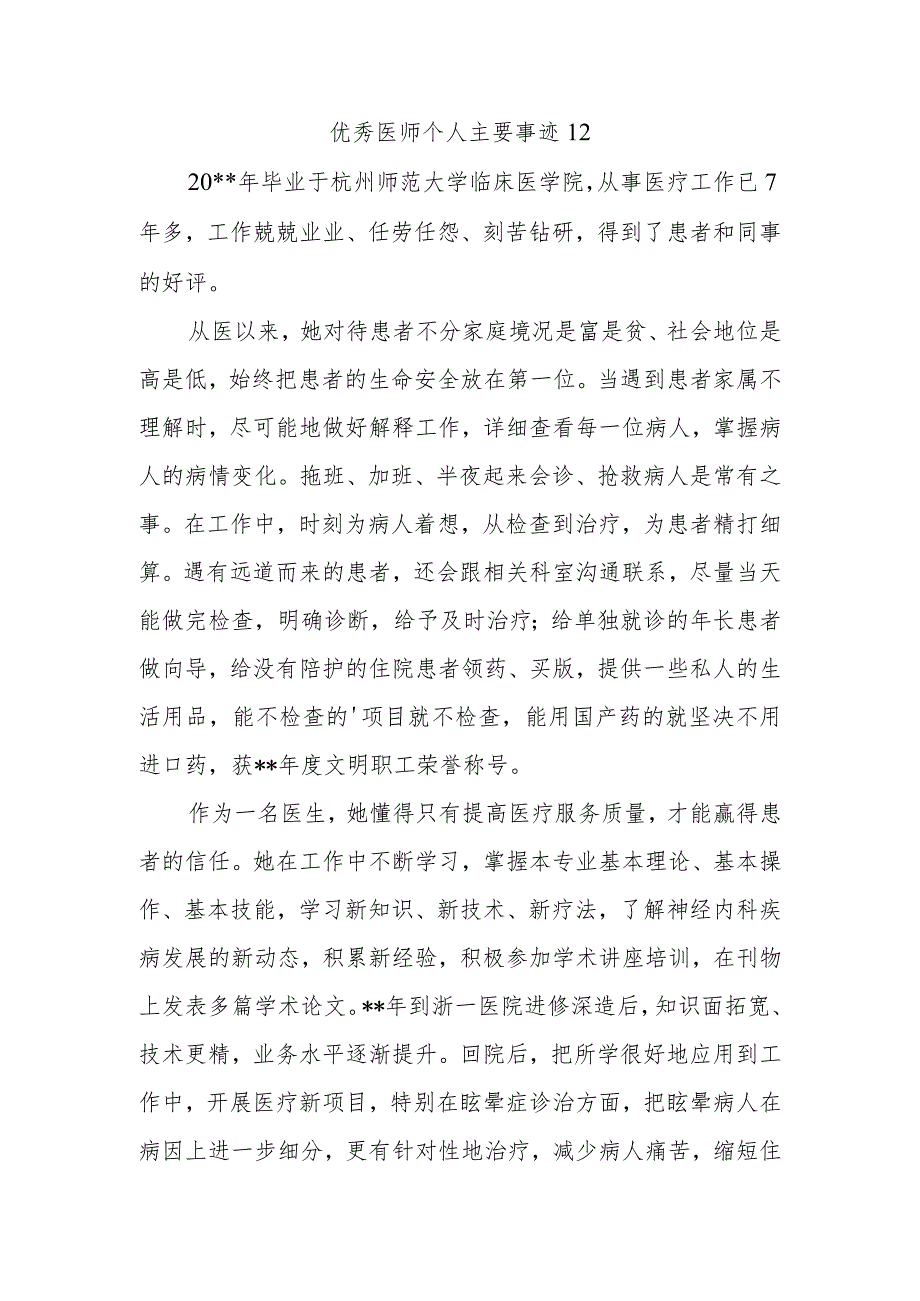 优秀医师个人主要事迹 12
20**年毕业于杭州师范大学临床医学院，从事医疗工作已 7
年多，工作兢兢业业、任劳任怨、刻苦钻研，得到了患者和同事
的好评。
从医以来，她对待患者不分家庭境况是富是贫、社会地位是
高是低，始终把患者的生命安全放在第一位。当遇到患者家属不
理解时，尽可能地做好解释工作，详细查看每一位病人，掌握病
人的病情变化。拖班、加班、半夜起来会诊、抢救病人是常有之
事。在工作中，时刻为病人着想，从检查到治疗，为患者精打细
算。遇有远道而来的患者，还会跟相关科室沟通联系，尽量当天
能做完检查，明确诊断，给予及时治疗；给单独就诊的年长患者
做向导，给没有陪护的住院患者领药、买版，提供一些私人的生
活用品，能不检查的'项目就不检查，能用国产药的就坚决不用
进口药，获**年度文明职工荣誉称号。
作为一名医生，她懂得只有提高医疗服务质量，才能赢得患
者的信任。她在工作中不断学习，掌握本专业基本理论、基本操
作、基本技能，学习新知识、新技术、新疗法，了解神经内科疾
病发展的新动态，积累新经验，积极参加学术讲座培训，在刊物
上发表多篇学术论文。**年到浙一医院进修深造后，知识面拓宽、
技术更精，业务水平逐渐提升。回院后，把所学很好地应用到工
作中，开展医疗新项目，特别在眩晕症诊治方面，把眩晕病人在
病因上进一步细分，更有针对性地治疗，减少病人痛苦，缩短住